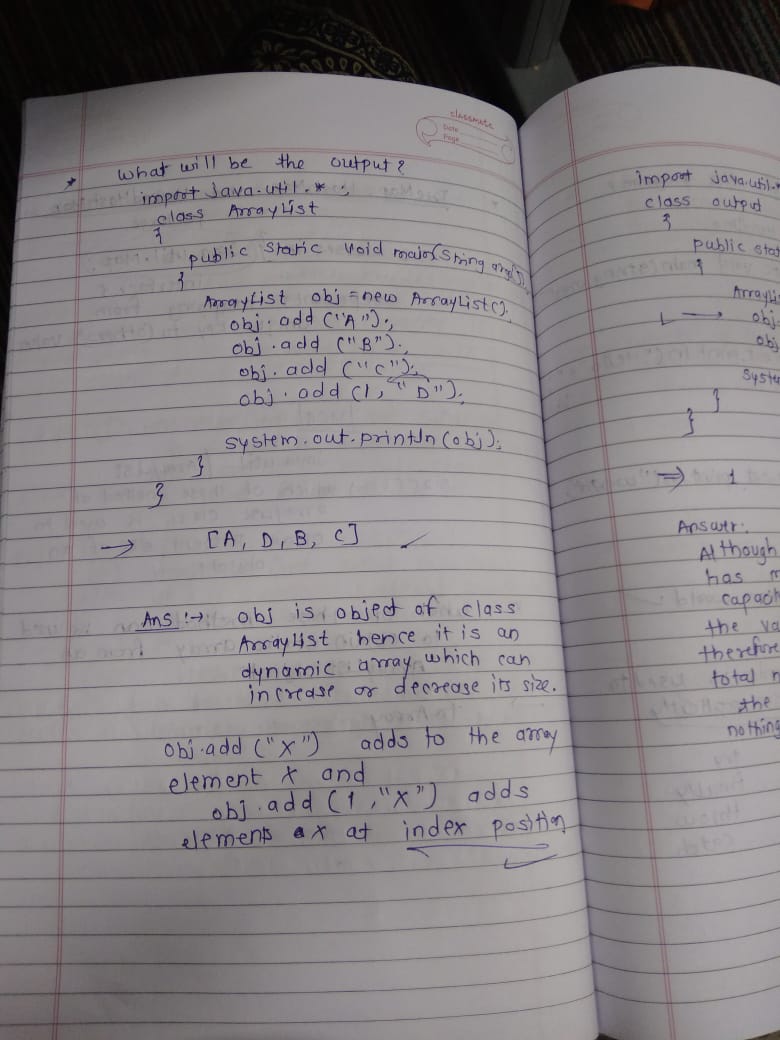 classmate
Date
Page
* What will be the output?
import java.util.*;
class ArrayList
{
public static void main(String arg[]).
{
ArrayList obj = new ArrayList();
obj.add ("A");
obj.add ("B");
obj.add ("C");
obj.add (1, "D");
system.out.println(obj);
}
}
→ [A, D, B, C]
Ans :→ obj is object of class
ArrayList hence it is an
dynamic array which can
increase or decrease its size.
obj.add ("X") adds to the array
element X and
obj.add (1, "X") adds
element X at index position
import java.util.*
class output
{
public stat
{
ArrayLi
obj.
obj
syste
}
}
⇒ 1
Answer:
Although
has m
capacit
the va
therefore
total n
the
nothing